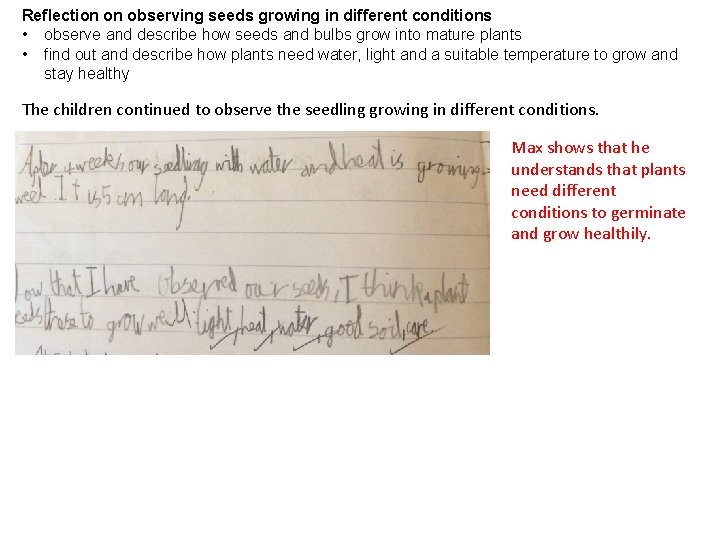 Reflection on observing seeds growing in different conditions
• observe and describe how seeds and bulbs grow into mature plants
• find out and describe how plants need water, light and a suitable temperature to grow and
stay healthy
The children continued to observe the seedling growing in different conditions.
Max shows that he
understands that plants
need different
conditions to germinate
and grow healthily.
weeks our seedling with water and heat is growing
well. It is 5 cm long.
ow that I have observed our seeds, I think a plant
eeds these to grow well: light, heat, water, good soil, care.